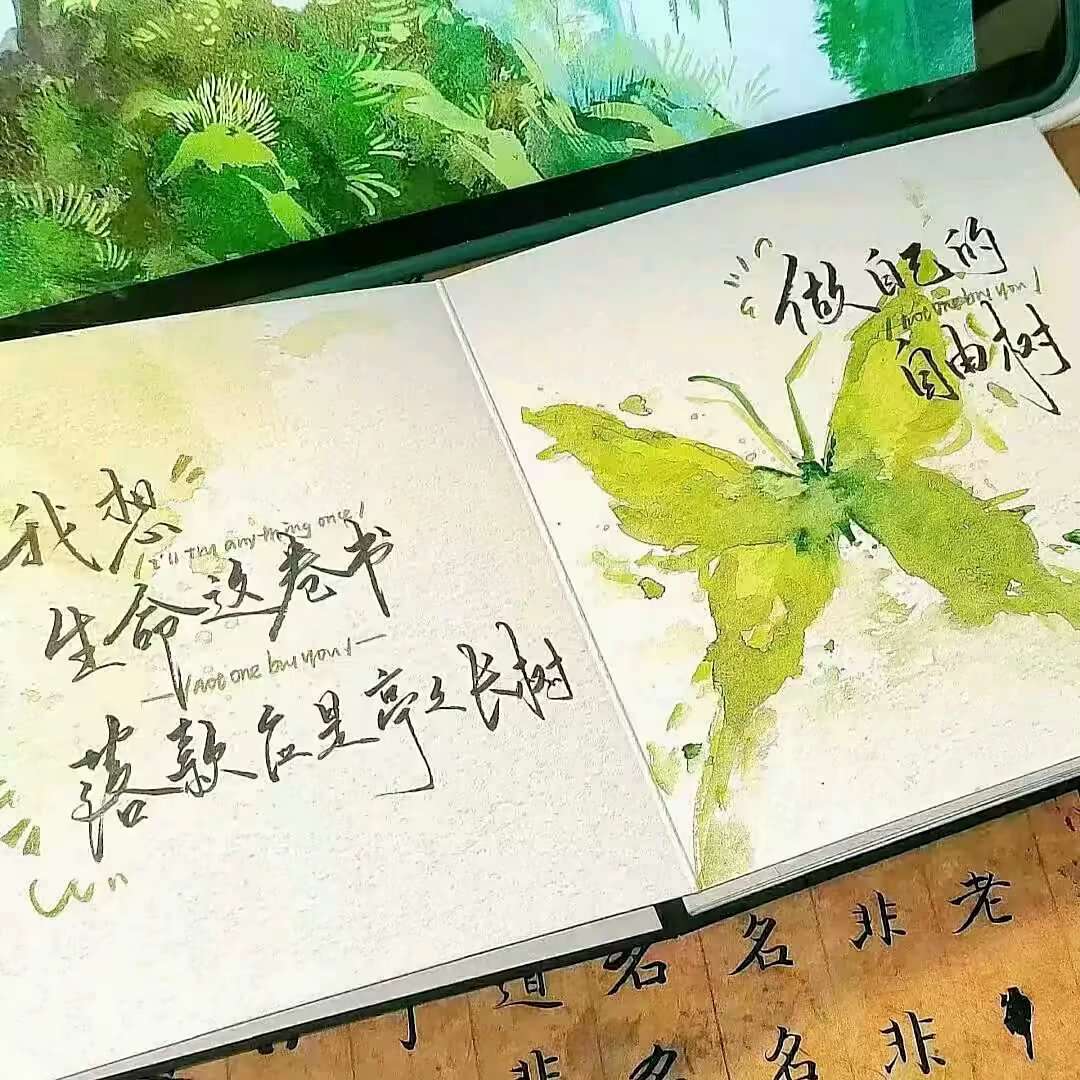 我想
I'll Thy any-thing once!
生命这卷书
not one bu you!
落款应是亭々长树
做自己的
not one bu you!
自由树
道名名非老
非名名非